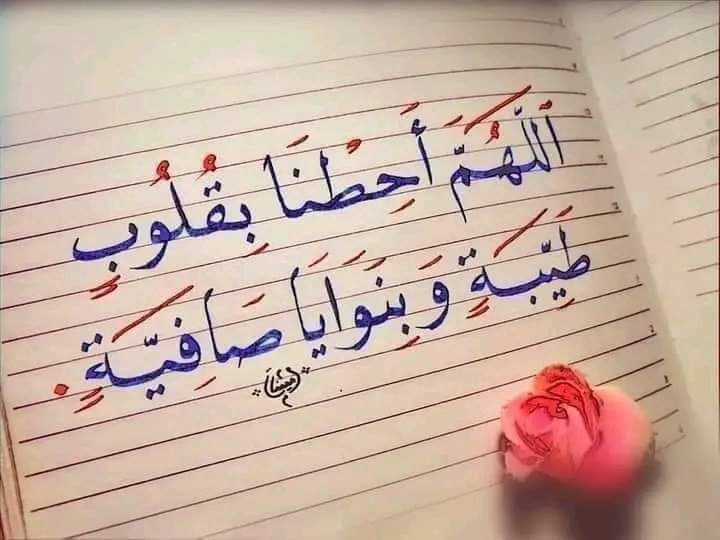 اللَّهُمَّ أَحِطْنَا بِقُلُوبٍ
طَيِّبَةٍ وَبِنَوَايَا صَافِيَّةٍ.